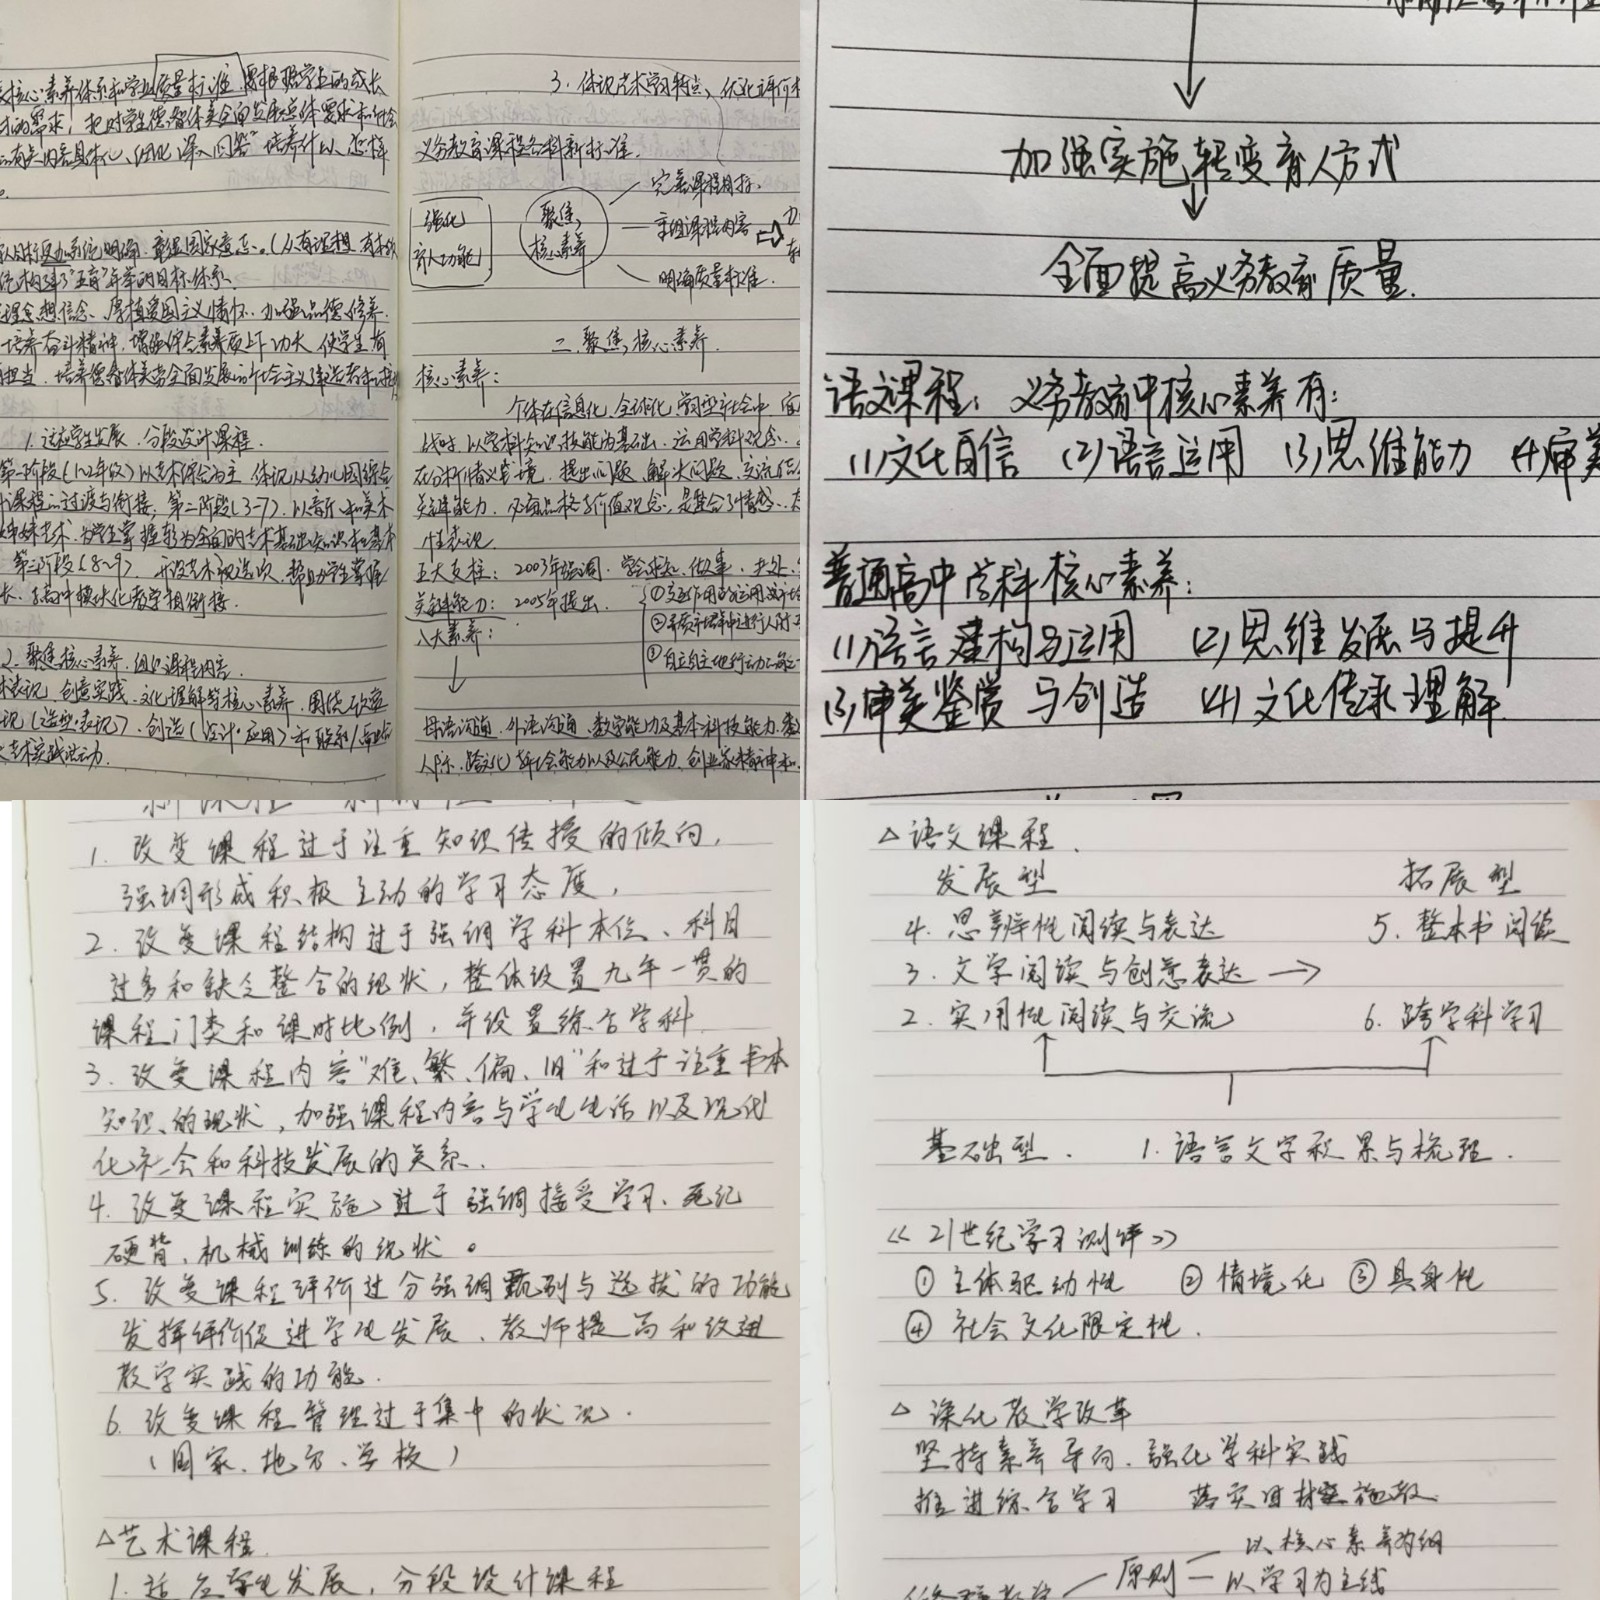 核心素养体系和学业质量标准 要根据学生的成长
的需求，把对学生德智体美全面发展总体要求和社会
有关内容具体化、细化 深入回答“培养什么人 怎样
系统明确，彰显国家意志。（从有理想 有本领
构建了“五育”并举的目标体系。
理想信念、厚植爱国主义情怀、加强品德修养
培养奋斗精神，增强综合素养质上下功夫 使学生有
担当，培养德智体美劳全面发展的社会主义建设者和接班
1. 适应学生发展，分段设计课程.
第一阶段（1~2年级）以艺术综合为主 体现从幼儿园综合
课程的过渡与衔接，第二阶段（3~7）以音乐和美术
姊妹艺术，为学生掌握较为全面的艺术基础知识和基本
第三阶段（8~9） 开设艺术选项，帮助学生掌握
长，与高中模块化教学相衔接.
2. 聚焦核心素养，组织课程内容.
创意实践、文化理解等核心素养，围绕欣赏
现（造型·表现）、创造（设计·应用）和联系/融合
艺术实践活动.
3. 体现艺术学习特点，优化评价
义务教育课程各科新标准.
强化
育人功能
聚焦
核心素养
完善课程目标.
重组课程内容
明确质量标准.
二、聚焦核心素养.
核心素养：
个体在信息化、全球化、学习型社会中
以学科知识技能为基础，运用学科观念
在分析情义情境、提出问题、解决问题、交流
关键能力，必备品格与价值观念，是整合了情感、
性表现.
五大支柱： 2003年强调，学会求知、做事、共处、
关键能力： 2005年提出.
八大素养：
母语沟通、外语沟通、数学能力及基本科技能力、
人际、跨文化 社会能力以及公民能力、创业家精神和
加强实施转变育人方式
全面提高义务教育质量.
语文课程：义务教育中核心素养有：
(1)文化自信 (2)语言运用 (3)思维能力 (4)审美
普通高中学科核心素养：
(1)语言建构与运用 (2)思维发展与提升
(3)审美鉴赏与创造 (4)文化传承理解.
1. 改变课程过于注重知识传授的倾向，
强调形成积极主动的学习态度，
2. 改变课程结构过于强调学科本位、科目
过多和缺乏整合的现状，整体设置九年一贯的
课程门类和课时比例，并设置综合学科
3. 改变课程内容“难、繁、偏、旧”和过于注重书本
知识的现状，加强课程内容与学生生活以及现代
化社会和科技发展的关系.
4. 改变课程实施过于强调接受学习、死记
硬背、机械训练的现状。
5. 改变课程评价过分强调甄别与选拔的功能
发挥评价促进学生发展、教师提高和改进
教学实践的功能.
6. 改变课程管理过于集中的状况.
（国家、地方、学校）
△艺术课程
1. 适应学生发展，分段设计课程
△语文课程.
发展型 拓展型
4. 思辨性阅读与表达 5. 整本书阅读
3. 文学阅读与创意表达 →
2. 实用性阅读与交流 6. 跨学科学习
基础型. 1. 语言文字积累与梳理.
《21世纪学习测评》
① 主体驱动性 ② 情境化 ③ 具身性
④ 社会文化限定性.
△ 深化教学改革
坚持素养导向、强化学科实践
推进综合学习 落实因材施教.
原则 以核心素养为纲
以学习为主线